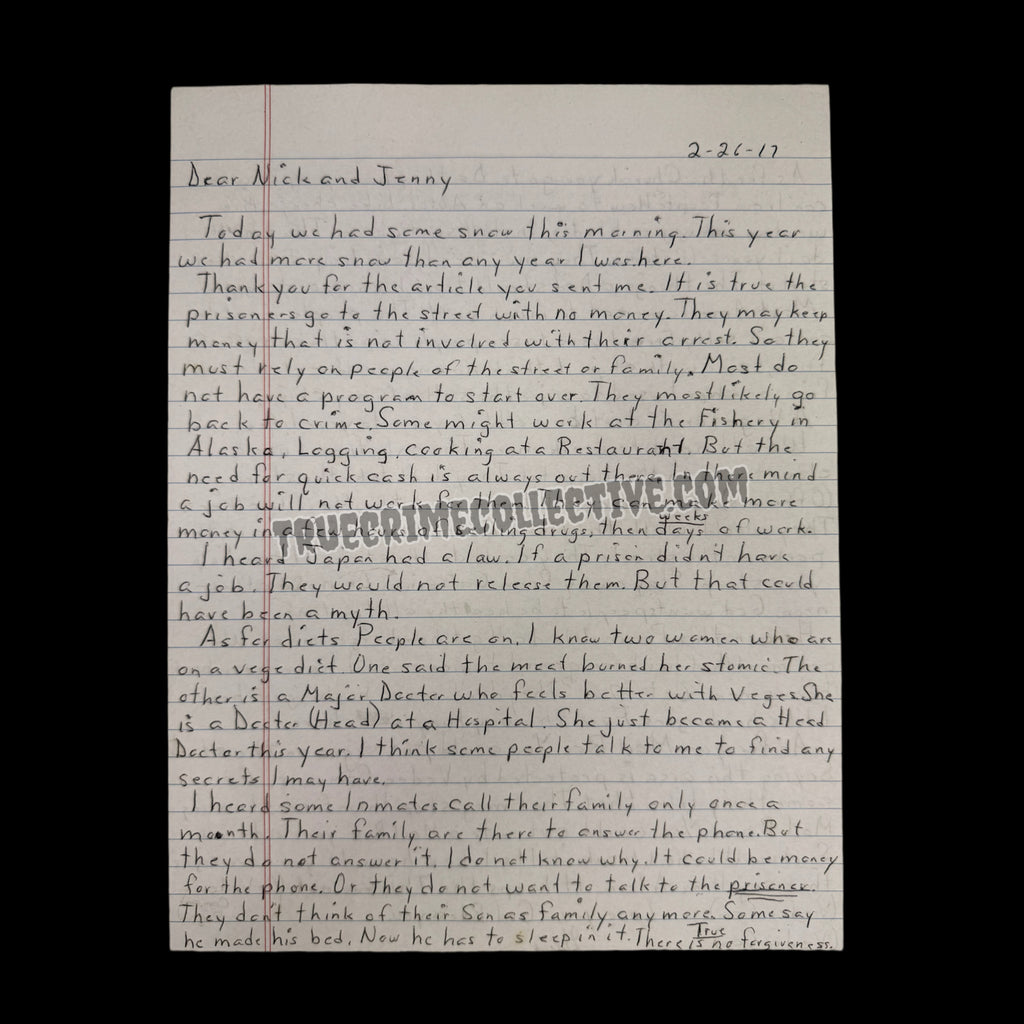 2-26-17
Dear Nick and Jenny
Today we had some snow this morning. This year
we had more snow than any year I was here.
Thank you for the article you sent me. It is true the
prisoners go to the street with no money. They may keep
money that is not involved with their arrest. So they
must rely on people of the street or family. Most do
not have a program to start over. They most likely go
back to crime. Some might work at the Fishery in
Alaska, Logging, cooking at a Restaurant. But the
need for quick cash is always out there. In there mind
a job will not work for them. They can make more
TRUECRIMECOLLECTIVE.COM
weeks
money in a few hours of selling drugs, then days of work.
I heard Japan had a law. If a prison didn't have
a job. They would not release them. But that could
have been a myth.
As for diets People are on. I know two women who are
on a vege diet. One said the meat burned her stomic. The
other is a Major Docter who feels better with Veges She
is a Docter (Head) at a Hospital. She just became a Head
Docter this year. I think some people talk to me to find any
secrets I may have.
I heard some Inmates call their family only once a
month. Their family are there to answer the phone. But
they do not answer it. I do not know why. It could be money
for the phone. Or they do not want to talk to the prisoner.
They don't think of their Son as family any more. Some say
True
he made his bed. Now he has to sleep in it. There is no forgiveness.